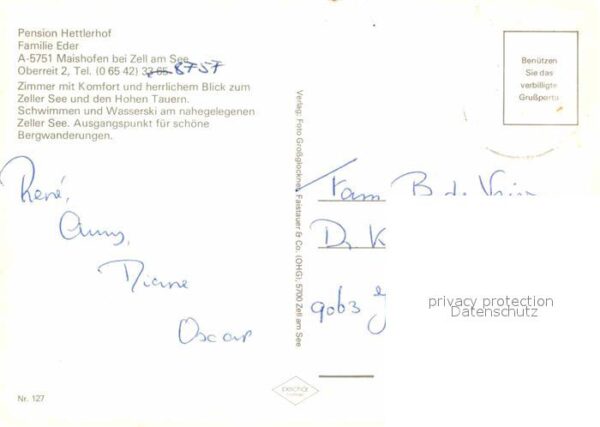 Pension Hettlerhof
Familie Eder
A-5751 Maishofen bei Zell am See
Oberreit 2, Tel. (0 65 42) 8757
Zimmer mit Komfort und herrlichem Blick zum
Zeller See und den Hohen Tauern.
Schwimmen und Wasserski am nahegelegenen
Zeller See. Ausgangspunkt für schöne
Bergwanderungen.
René,
Anny,
Diane
Oscar
Nr. 127
Verlag: Foto Großglockner, Faistauer & Co. (OHG), 5700 Zell am See
Benützen
Sie das
verbilligte
Grußporto
Fam B de
D K
9063
privacy protection
Datenschutz